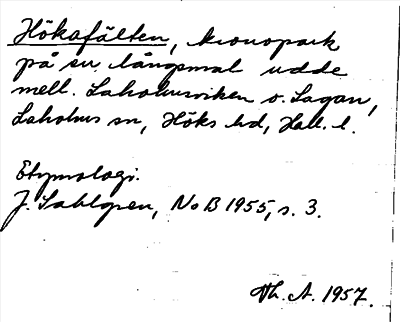 Hökafälten, kronopark
på en långsmal udde
mell. Laholmsviken o. Lagan,
Laholms sn, Höks hd, Hall. l.
Etymologi.
J. Sahlgren, NoB 1955, s. 3.
Th. A. 1957.